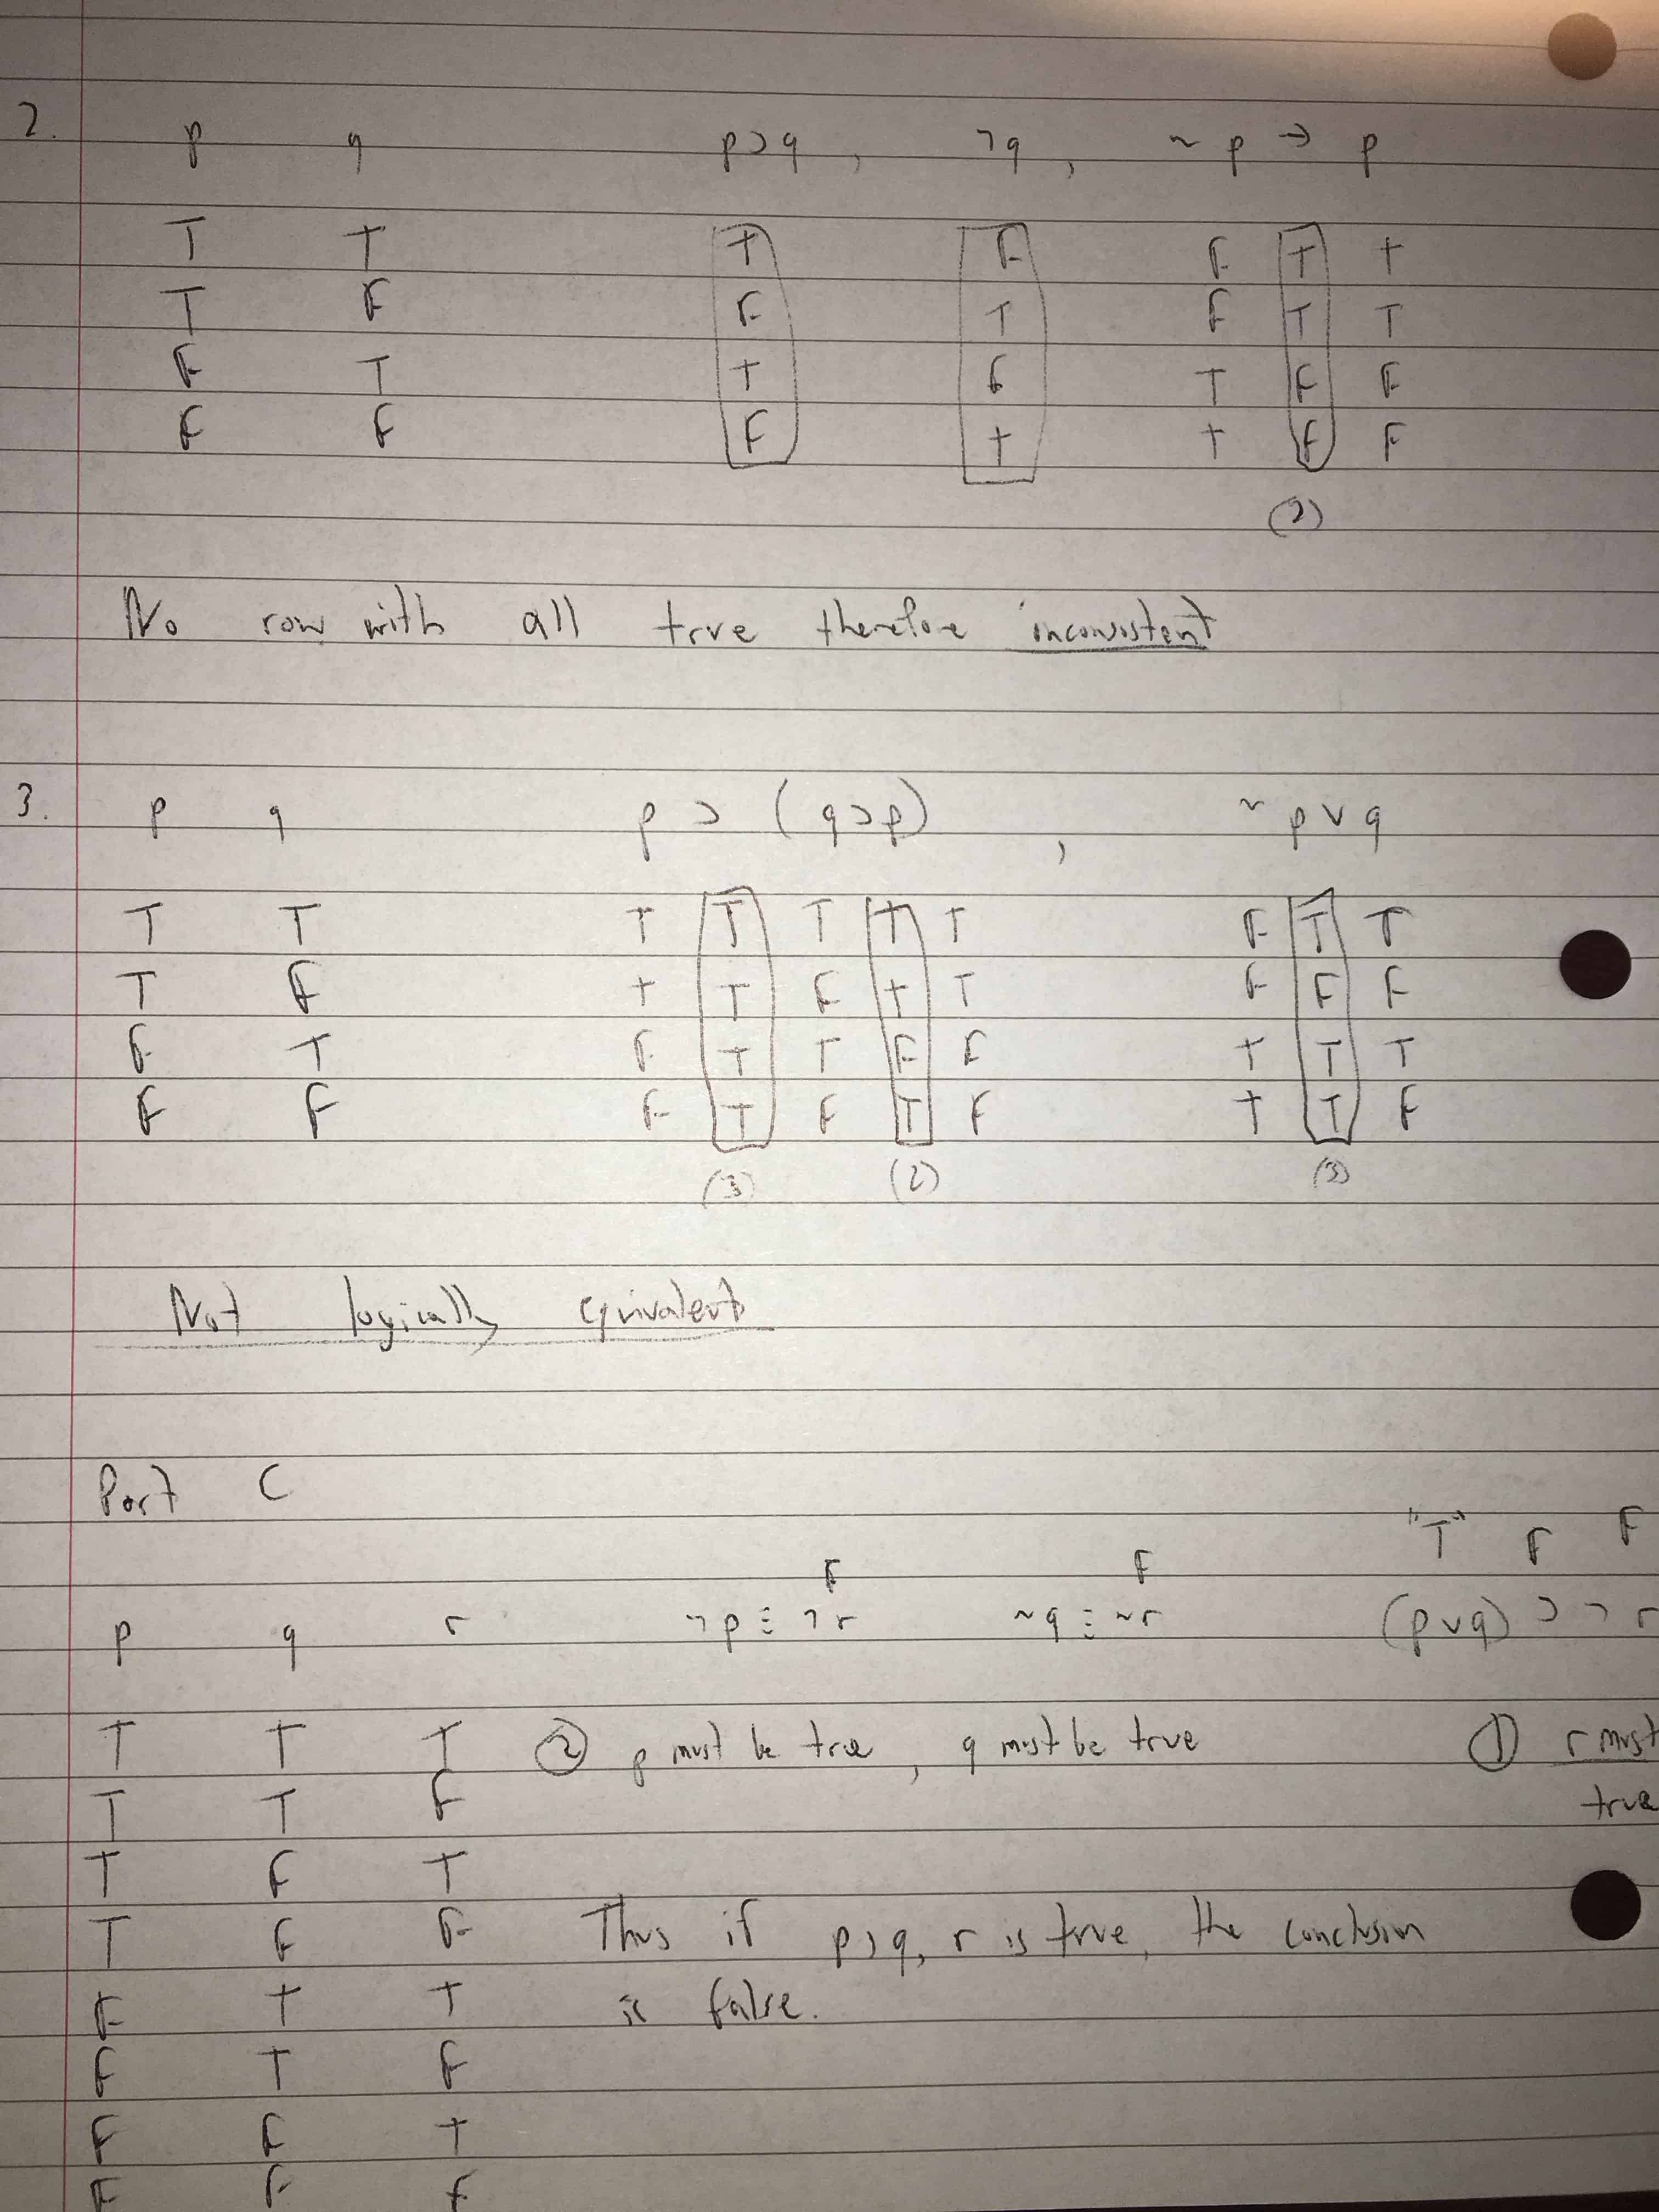 2.
p q p⊃q , ¬q , ~p → p
T T T F F T T
T F F T F T T
F T T F T F F
F F F T T F F
(2)
No row with all true therefore inconsistent
3. p q p ⊃ (q⊃p) , ~p∨q
T T T T T T T F T T
T F T T F T T F F F
F T F T T F F T T T
F F F T F T F T T F
(3) (2) (3)
Not logically equivalent
Part C
"T" F F
F F
p q r ¬p ≡ ¬r ~q ≡ ~r (p∨q) ⊃ ¬r
T T T ② p must be true, q must be true ① r must
T T F true
T F T
T F F Thus if p, q, r is true, the conclusion
F T T is false.
F T F
F F T
F F F